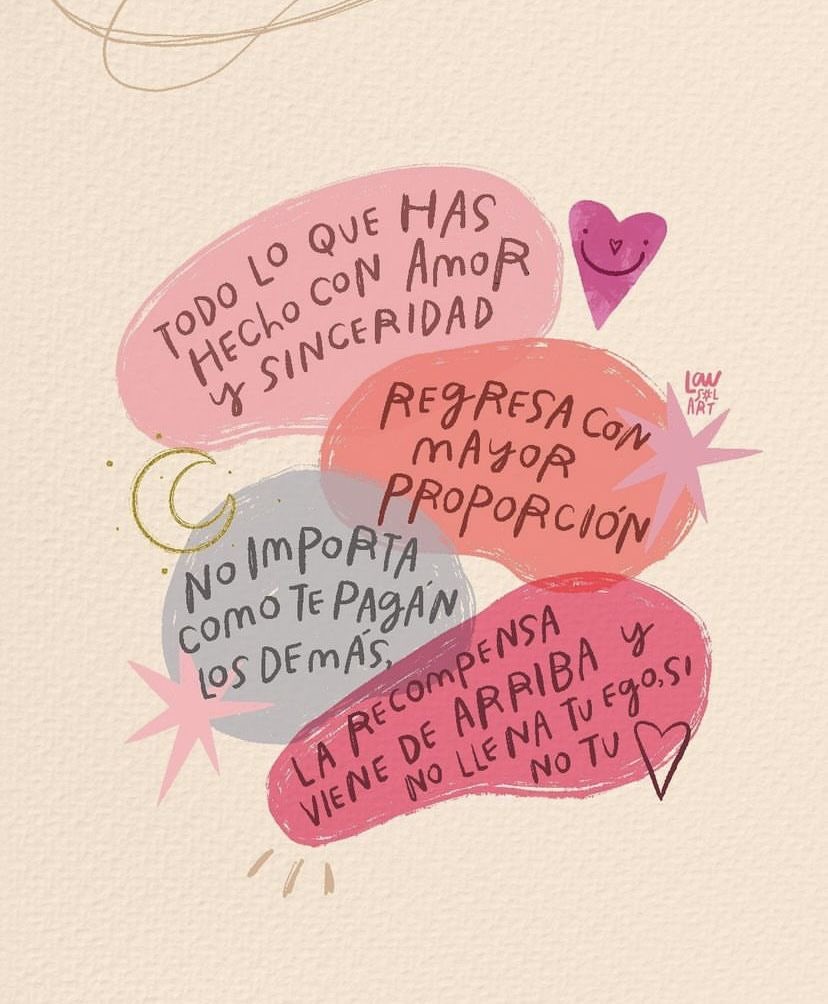 TODO LO QUE HAS
HECHO CON AMOR
y SINCERIDAD
REGRESA CON
MAYOR
PROPORCIÓN
NO IMPORTA
COMO TE PAGÁN
LOS DEMÁS,
LA RECOMPENSA
VIENE DE ARRIBA y
NO LLENA TU EGO, SI
NO TU
LAW
SOL
ART